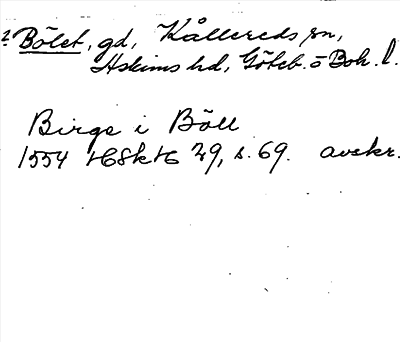 2 Bölet, gd, Kållereds sn,
Askims hd, Göteb. o Boh. l.
Birge i Böll
1554 HSkH 29, s. 69. avskr.